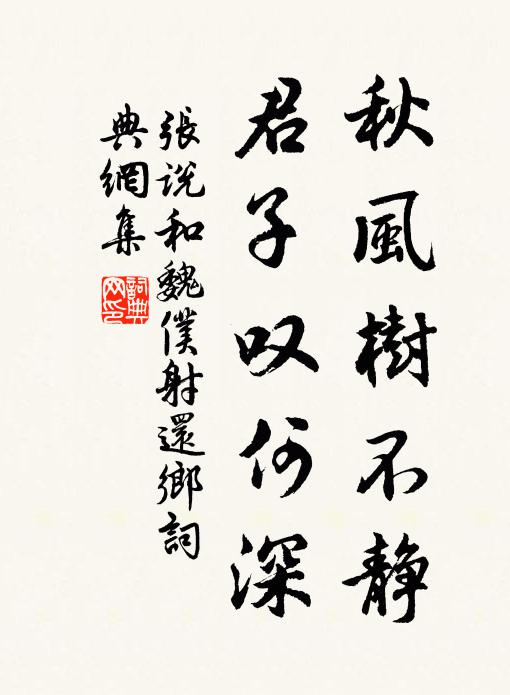 秋風樹不静
君子叹何深
張说和魏僕射還鄉詞
典網集
詞典网印